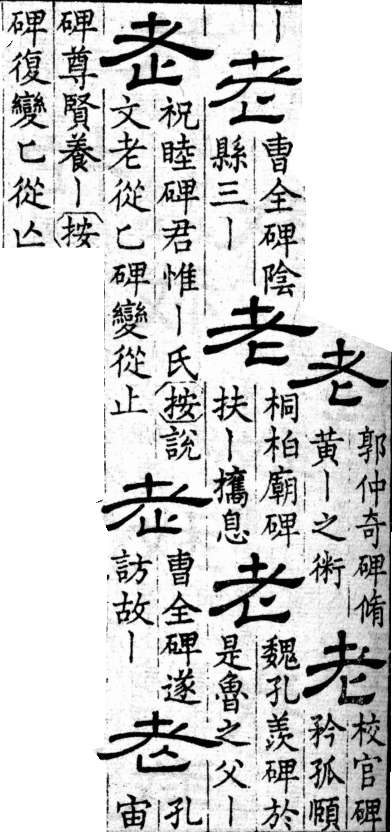 老
郭仲奇碑脩
黄ー之術
老
校官碑
矜孤頤
ー
老
曹全碑陰
縣三ー
老
桐柏廟碑
扶ー攜息
老
魏孔羨碑於
是魯之父ー
老
祝睦碑君惟ー氏按說
文老從匕碑變從止
老
曹全碑遂
訪故ー
老
孔
宙
碑尊賢養ー按
碑復變匕從亾